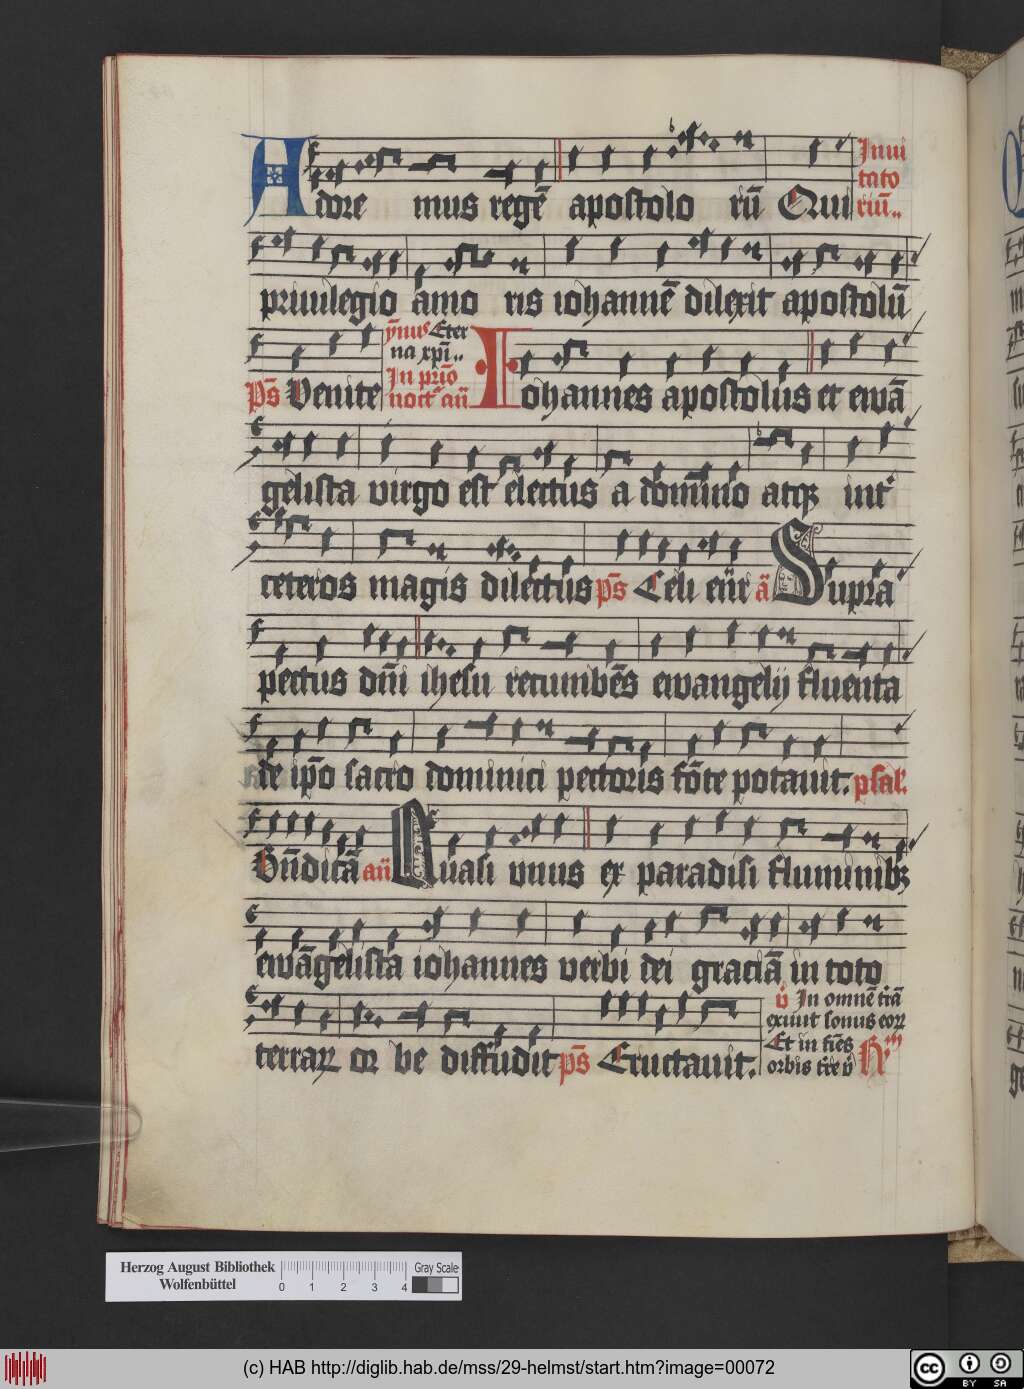 Adore mus regē apostolo rū Qui Inui
tato
riū..
priuilegio amo ris iohannē dilexit apostolū
ps̄ Venite ȳnus Eter
na xp̄i..
In prīo
noct̄ añ Iohannes apostolus et ewā
gelista virgo est electus a domino atqȝ int̾
ceteros magis dilectus ps̄ Celi enr̄ ā Supra
pectus dn̄i ihesu recumbēs ewangelij fluenta
de ip̄o sacro dominici pectoris fōte potauit. psal'
Bn̄dicā añ Quasi vnus ex paradisi fluminibȝ
ewāgelista iohannes verbi dei graciā in toto
terraꝝ or be diffudit ps̄ Eructauit. v̄ In omnē t̄rā
exiuit sonus eoꝝ
Et in fiēs
orbis t̄re v̄ Rm
Herzog August Bibliothek
Wolfenbüttel
0 1 2 3 4
Gray Scale
(c) HAB http://diglib.hab.de/mss/29-helmst/start.htm?image=00072
cc BY SA